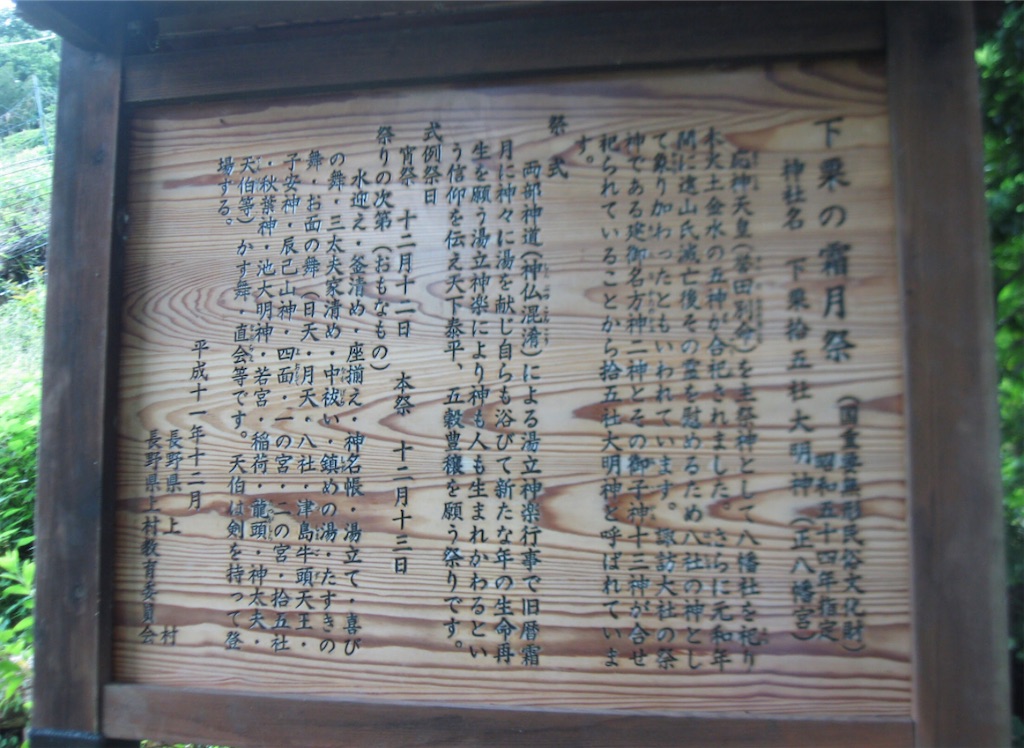 下栗の霜月祭 (国重要無形民俗文化財
昭和五十四年指定)
神社名 下栗拾五社大明神(正八幡宮)
応神天皇(誉田別命)を主祭神として八幡社を祀り
木火土金水の五神が合祀されました。さらに元和年
間に遠山氏滅亡後その霊を慰めるため八社の神とし
て象り加わったともいわれています。諏訪大社の祭
神である建御名方神二神とその御子神十三神が合せ
祀られていることから拾五社大明神と呼ばれていま
す。
祭式
両部神道(神仏混淆)による湯立神楽行事で旧暦霜
月に神々に湯を献し自らも浴びて新たな年の生命再
生を願う湯立神楽により神も人も生まれかわるとい
う信仰を伝え天下泰平、五穀豊穣を願う祭りです。
式例祭日
宵祭 十二月十二日 本祭 十二月十三日
祭りの次第(おもなもの)
水迎え・釜清め・座揃え・神名帳・湯立て・喜び
の舞・三太夫家清め・中祓い・鎮めの湯・たすきの
舞・お面の舞(日天・月天・八社・津島牛頭天王・
子安神・辰己山神・四面・一の宮・二の宮・拾五社
・秋葉神・池大明神・若宮・稲荷・龍頭・神太夫・
天伯等)かす舞・直会等です。天伯は剣を持って登
場する。
平成十一年十二月
長野県 上 村
長野県上村教育委員会